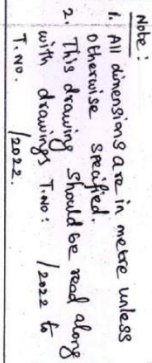 Note:
1. All dimensions are in metre unless
otherwise specified.
2. This drawing should be read along
with drawings T.No: /2022 to
T.No. /2022.